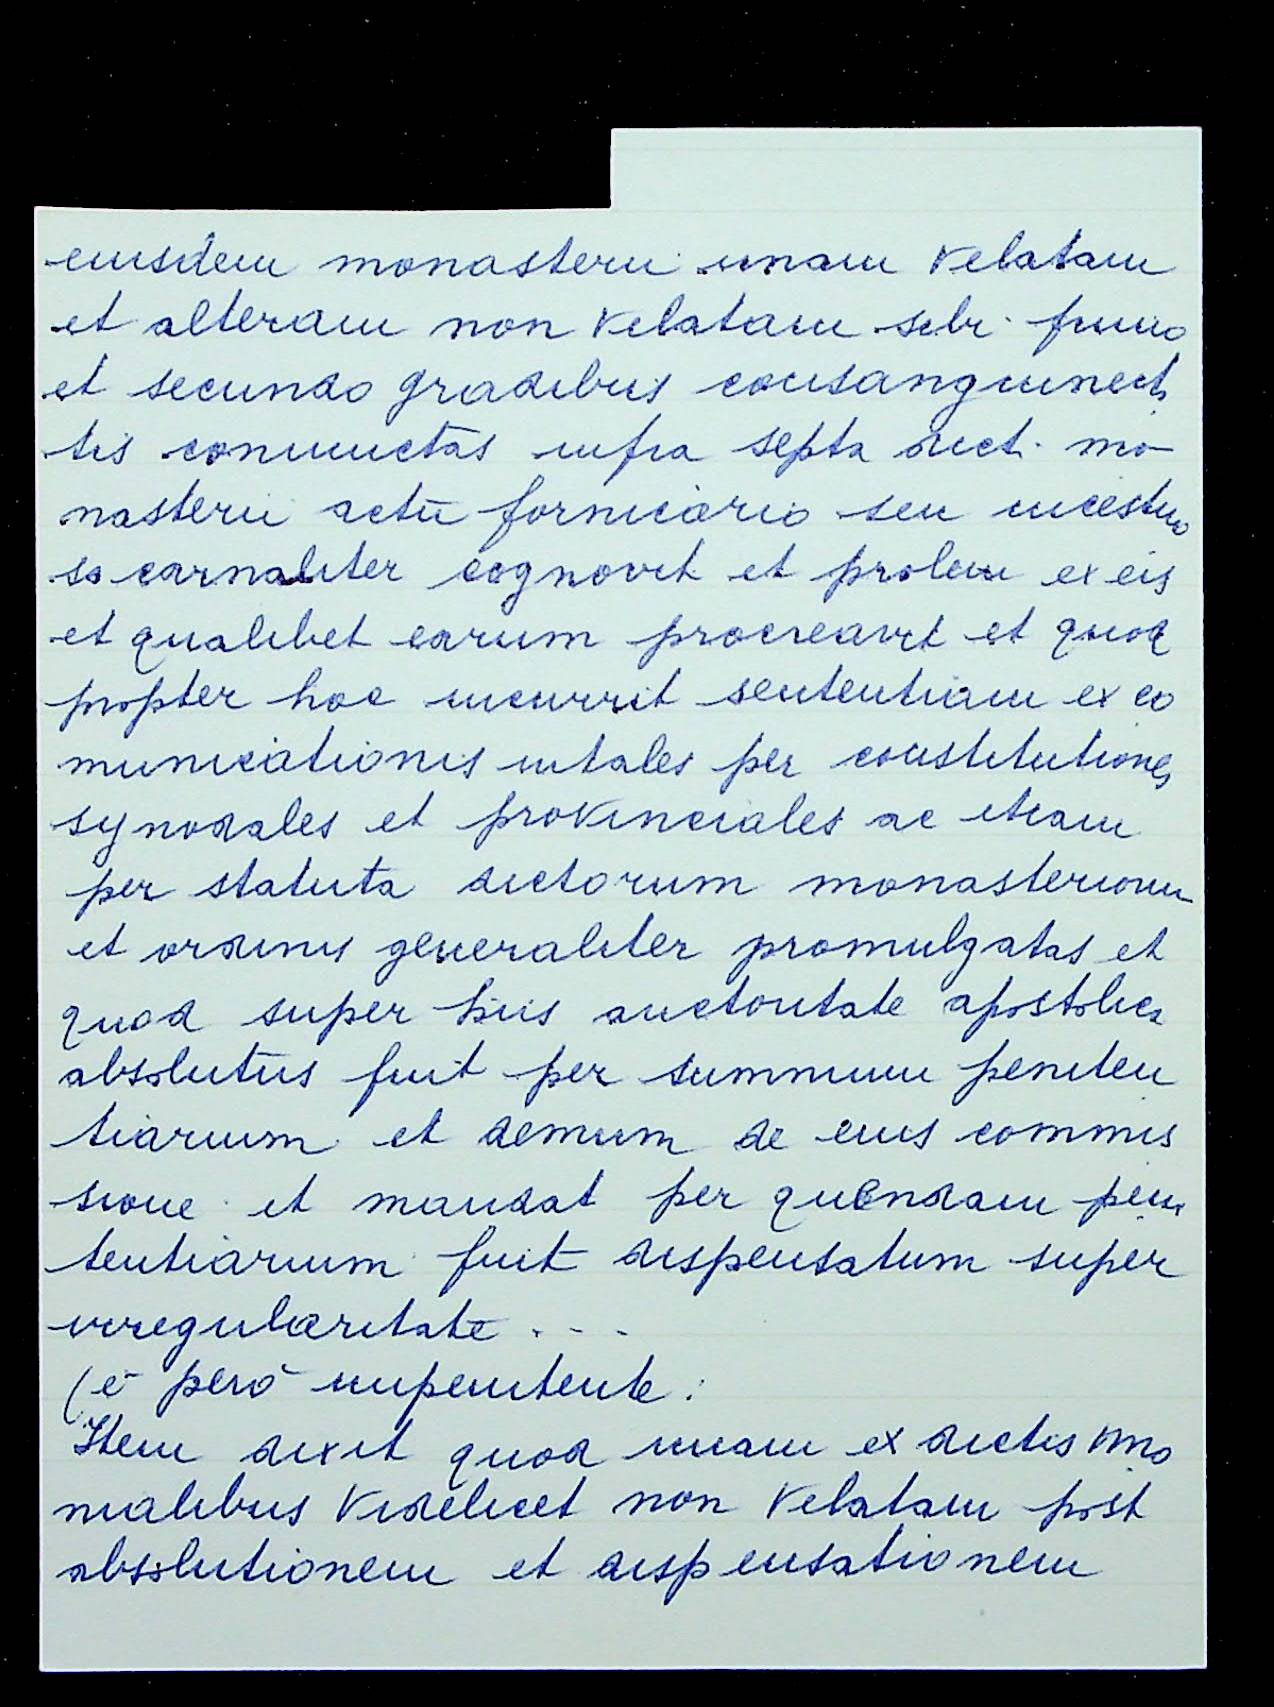 eiusdem monasterii unam velatam
et alteram non velatam sibi primo
et secundo gradibus consanguineita
tis coniunctas infra septa dicti mo-
nasterii actu fornicario seu incestuo
so carnaliter cognovit et prolem ex eis
et qualibet earum procreavit et quod
propter hoc incurrit sententiam exco
municationis in tales per constitutiones
synodales et provinciales ac etiam
per statuta dictorum monasteriorum
et ordinis generaliter promulgatas et
quod super hiis auctoritate apostolica
absolutus fuit per summum peniten
tiarium et demum de eius commis
sione et mandat per quendam peni
tentiarium fuit dispensatum super
irregularitate . . .
(è però impenitente:
Item dixit quod unam ex dictis mo
nialibus videlicet non velatam post
absolutionem et dispensationem